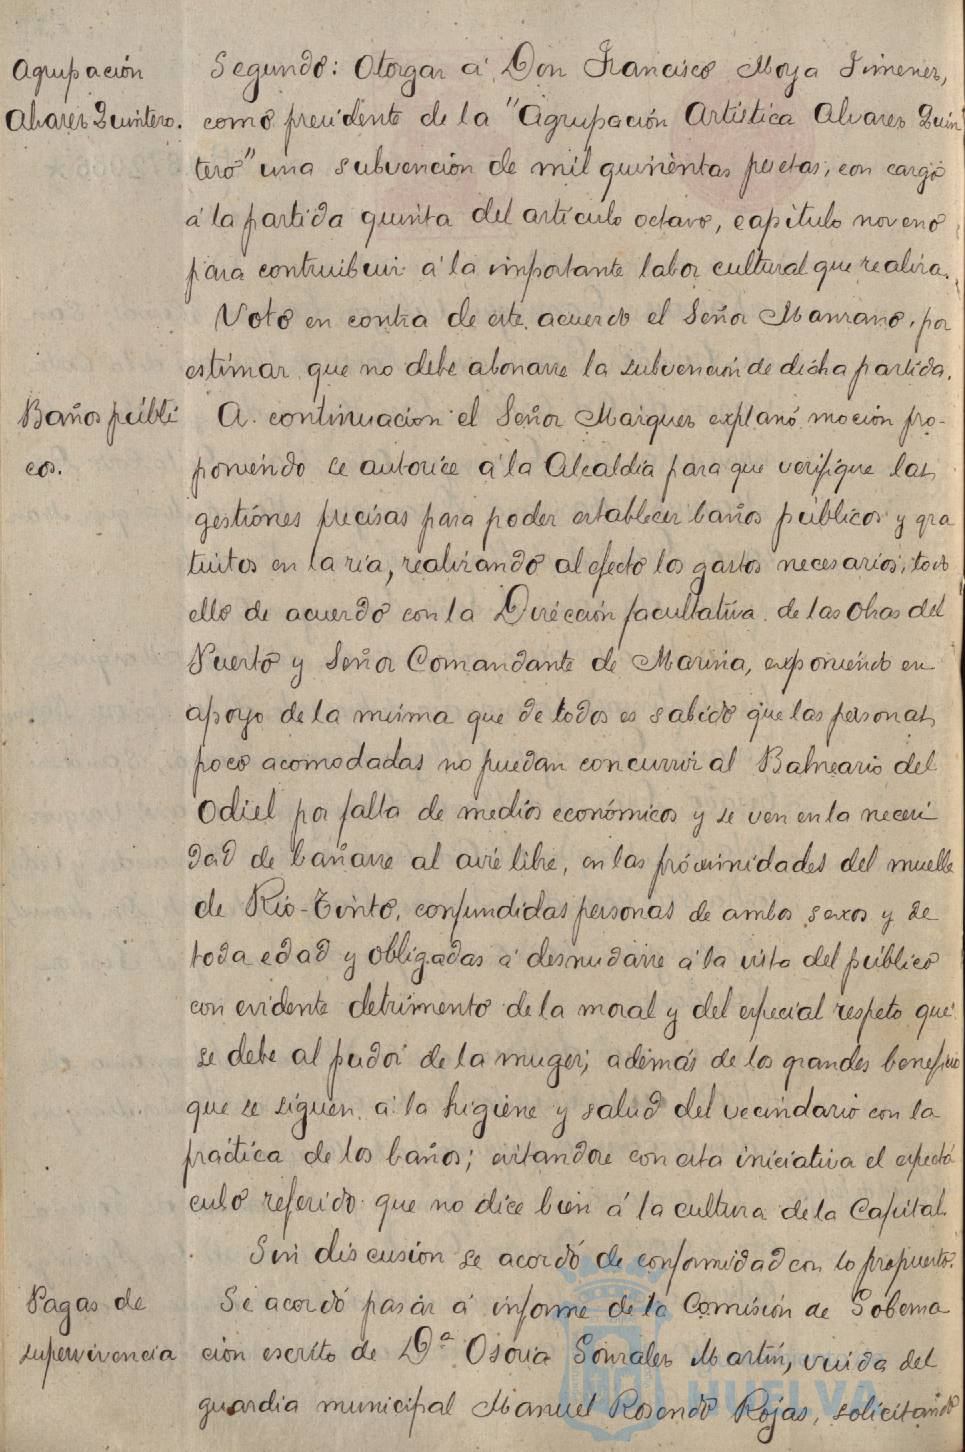 Agrupación
Alvarez Quintero.
Segundo: Otorgar á Don Francisco Moya Jimenez,
como presidente de la "Agrupación Artística Alvarez Quin
tero" una subvención de mil quinientas pesetas, con cargo
á la partida quinta del artículo octavo, capítulo noveno
para contribuir á la importante labor cultural que realiza.
Votó en contra de este acuerdo el Señor Manzano, por
estimar que no debe abonarse la subvención de dicha partida.
Baños públi
cos.
A continuación el Señor Marquez explanó moción pro-
poniendo se autorice á la Alcaldía para que verifique las
gestiones precisas para poder establecer baños públicos y gra
tuitos en la ría, realizando al efecto los gastos necesarios, todo
ello de acuerdo con la Dirección facultativa de las Obras del
Puerto y Señor Comandante de Marina, exponiendo en
apoyo de la misma que de todos es sabido que las personas
poco acomodadas no puedan concurrir al Balneario del
Odiel por falta de medios económicos y se ven en la necesi
dad de bañarse al aire libre, en las próximidades del muelle
de Rio-Tinto, confundidas personas de ambos sexos y de
toda edad y obligadas á desnudarse á la vista del público
con evidente detrimento de la moral y del especial respeto que
se debe al pudor de la muger; además de los grandes beneficios
que se siguen á la higiene y salud del vecindario con la
práctica de los baños; evitandose con esta iniciativa el espectá
culo referido que no dice bien á la cultura de la Capital.
Sin discusión se acordó de conformidad con lo propuesto.
Pagas de
supervivencia
Se acordó pasar á informe de la Comisión de Goberna
ción escrito de Dª Osoria Gonzalez Martín, viuda del
guardia municipal Manuel Rosendo Rojas, solicitando
HUELVA